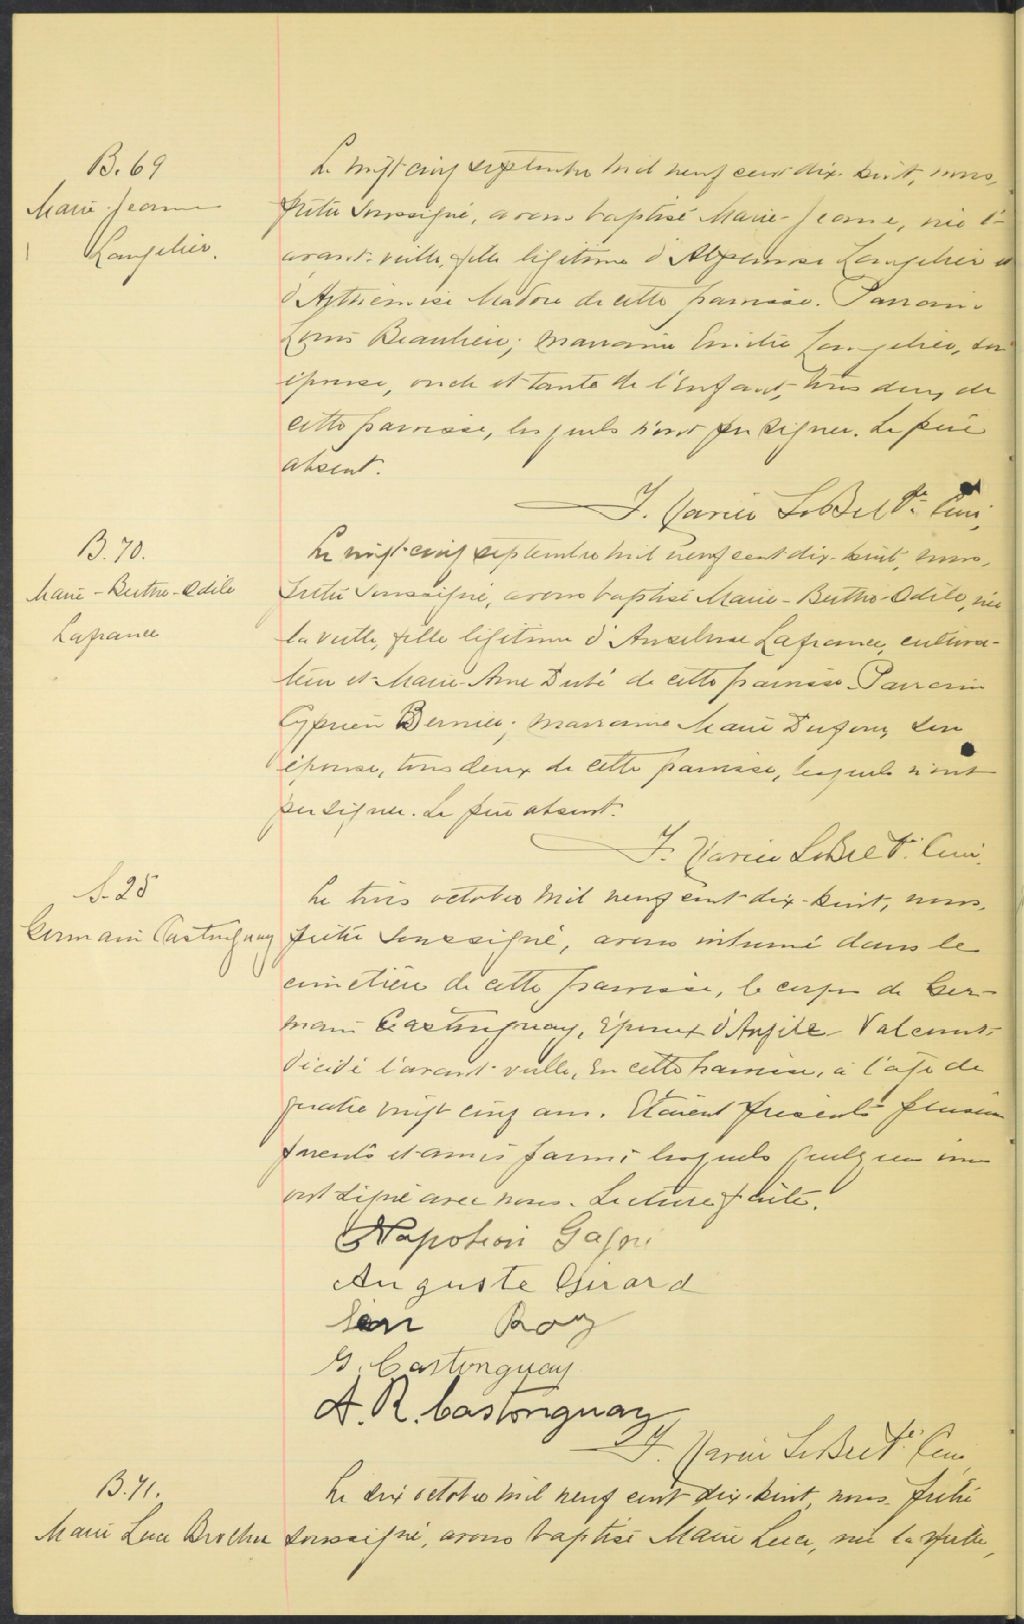 B. 69
Marie-Jeanne
Langelier.
Le vingt-cinq septembre mil neuf cent dix-huit, nous,
prêtre soussigné, avons baptisé Marie-Jeanne, née l'-
avant-veille, fille légitime d'Alphonse Langelier et
d'Arthémise Nadon de cette paroisse. Parrain
Louis Beaulieu; marraine Emilie Langelier, son
épouse, oncle et tante de l'enfant, tous deux de
cette paroisse, lesquels n'ont pu signer. Le père
absent.
J. Xavier LeBel Ptre Curé,
B. 70.
Marie-Berthe-Odile
Lafrance
Le vingt-cinq septembre mil neuf cent dix-huit, nous,
prêtre soussigné, avons baptisé Marie-Berthe-Odile, née
la veille, fille légitime d'Anselme Lafrance, cultiva-
teur et Marie-Anne Dubé de cette paroisse. Parrain
Cyprien Bernier; marraine Marie Dufour, son
épouse, tous deux de cette paroisse, lesquels n'ont
pu signer. Le père absent.
J. Xavier LeBel Ptre Curé.
S. 25
Germain Castonguay
Le trois octobre mil neuf cent dix-huit, nous,
prêtre soussigné, avons inhumé dans le
cimetière de cette paroisse, le corps de Ger-
main Castonguay, époux d'Anjèle Valcourt
décédé l'avant-veille, en cette paroisse, à l'âge de
quatre vingt cinq ans. Etaient présents plusieurs
parents et amis parmi lesquels quelques uns
ont signé avec nous. Lecture faite.
Napoléon Gagné
Auguste Girard
Léon Roy
G. Castonguay
A. R. Castonguay
J. Xavier LeBel Ptre Curé
B. 71.
Marie Luce Brochu
Le six octobre mil neuf cent dix-huit, nous prêtre
soussigné, avons baptisé Marie Luce, née la veille,